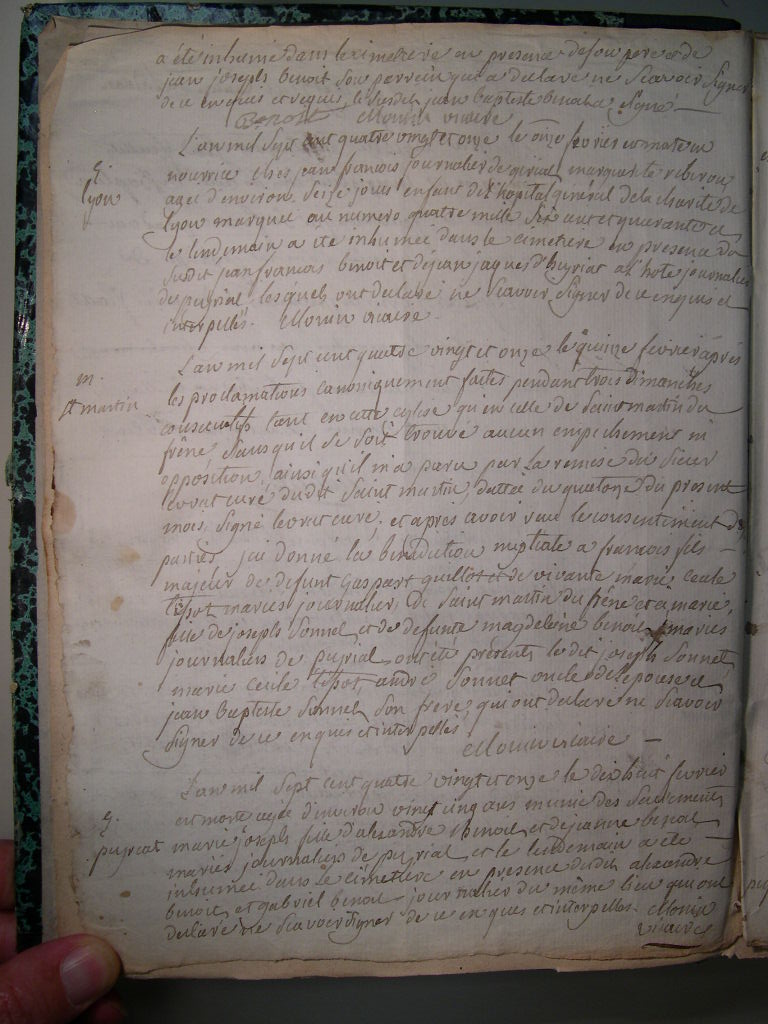 a été inhumé dans le cimetiere en presence de son pere et de
jean joseph benoit son parrein qui a declaré ne scavoir signer
de ce enquis et requis, le susdit jean baptiste benoit a signé
Benoit Monin vicaire
L'an mil sept cent quatre vingt et onze le onze fevrier est morte en
nourrice chez jean francois journalier de peyriat marguerite
agee d'environ seize jours enfant de l'hopital general de la charité de
lyon marquee au numero quatre mille six cent et quarante et
le lendemain a été inhumée dans le cimetiere en presence du
susdit jean francois benoit et de jean jaques d'huyriat a l'hote journalier
de peyriat lesquels ont declaré ne scavoir signer de ce enquis et
interpellés. Monin vicaire
E.
lyon
L'an mil sept cent quatre vingt et onze le quinze fevrier apres
les proclamations canoniquement faites pendant trois dimanches
consecutifs tant en cette eglise qu'en celle de Saint martin du
frêne, sans qu'il se soit trouvé aucun empechement ni
opposition, ainsi qu'il m'a paru par la remise du sieur
curé dudit Saint martin, dattée du quatorze du present
mois, signé curé, et apres avoir reçu le consentement des
parties, j'ai donné la benediction nuptiale a francois fils
majeur de defunt Gaspart guillot et de vivante marie cecile
tissot mariés journaliers de Saint martin du frêne et a marie,
fille de joseph Sonnet et de defunte magdeleine benoit mariés
journaliers de peyriat, ont été presents ledit joseph Sonnet,
marie cecile tissot, andré Sonnet oncle de l'epouse et
jean baptiste Sonnet son frere, qui ont declaré ne scavoir
signer de ce enquis et interpellés
Monin vicaire
m.
St martin
L'an mil sept cent quatre vingt et onze le dix huit fevrier
est morte agée d'environ vingt cinq ans munie des sacrements
marie joseph fille d'alexandre benoit et de jeanne benoit
mariés journaliers de peyriat, et le lendemain a été
inhumée dans le cimetiere en presence dudit alexandre
benoit et gabriel benoit journalier du même lieu qui ont
declaré ne scavoir signer de ce enquis et interpellés. Monin
vicaire
E.
peyriat